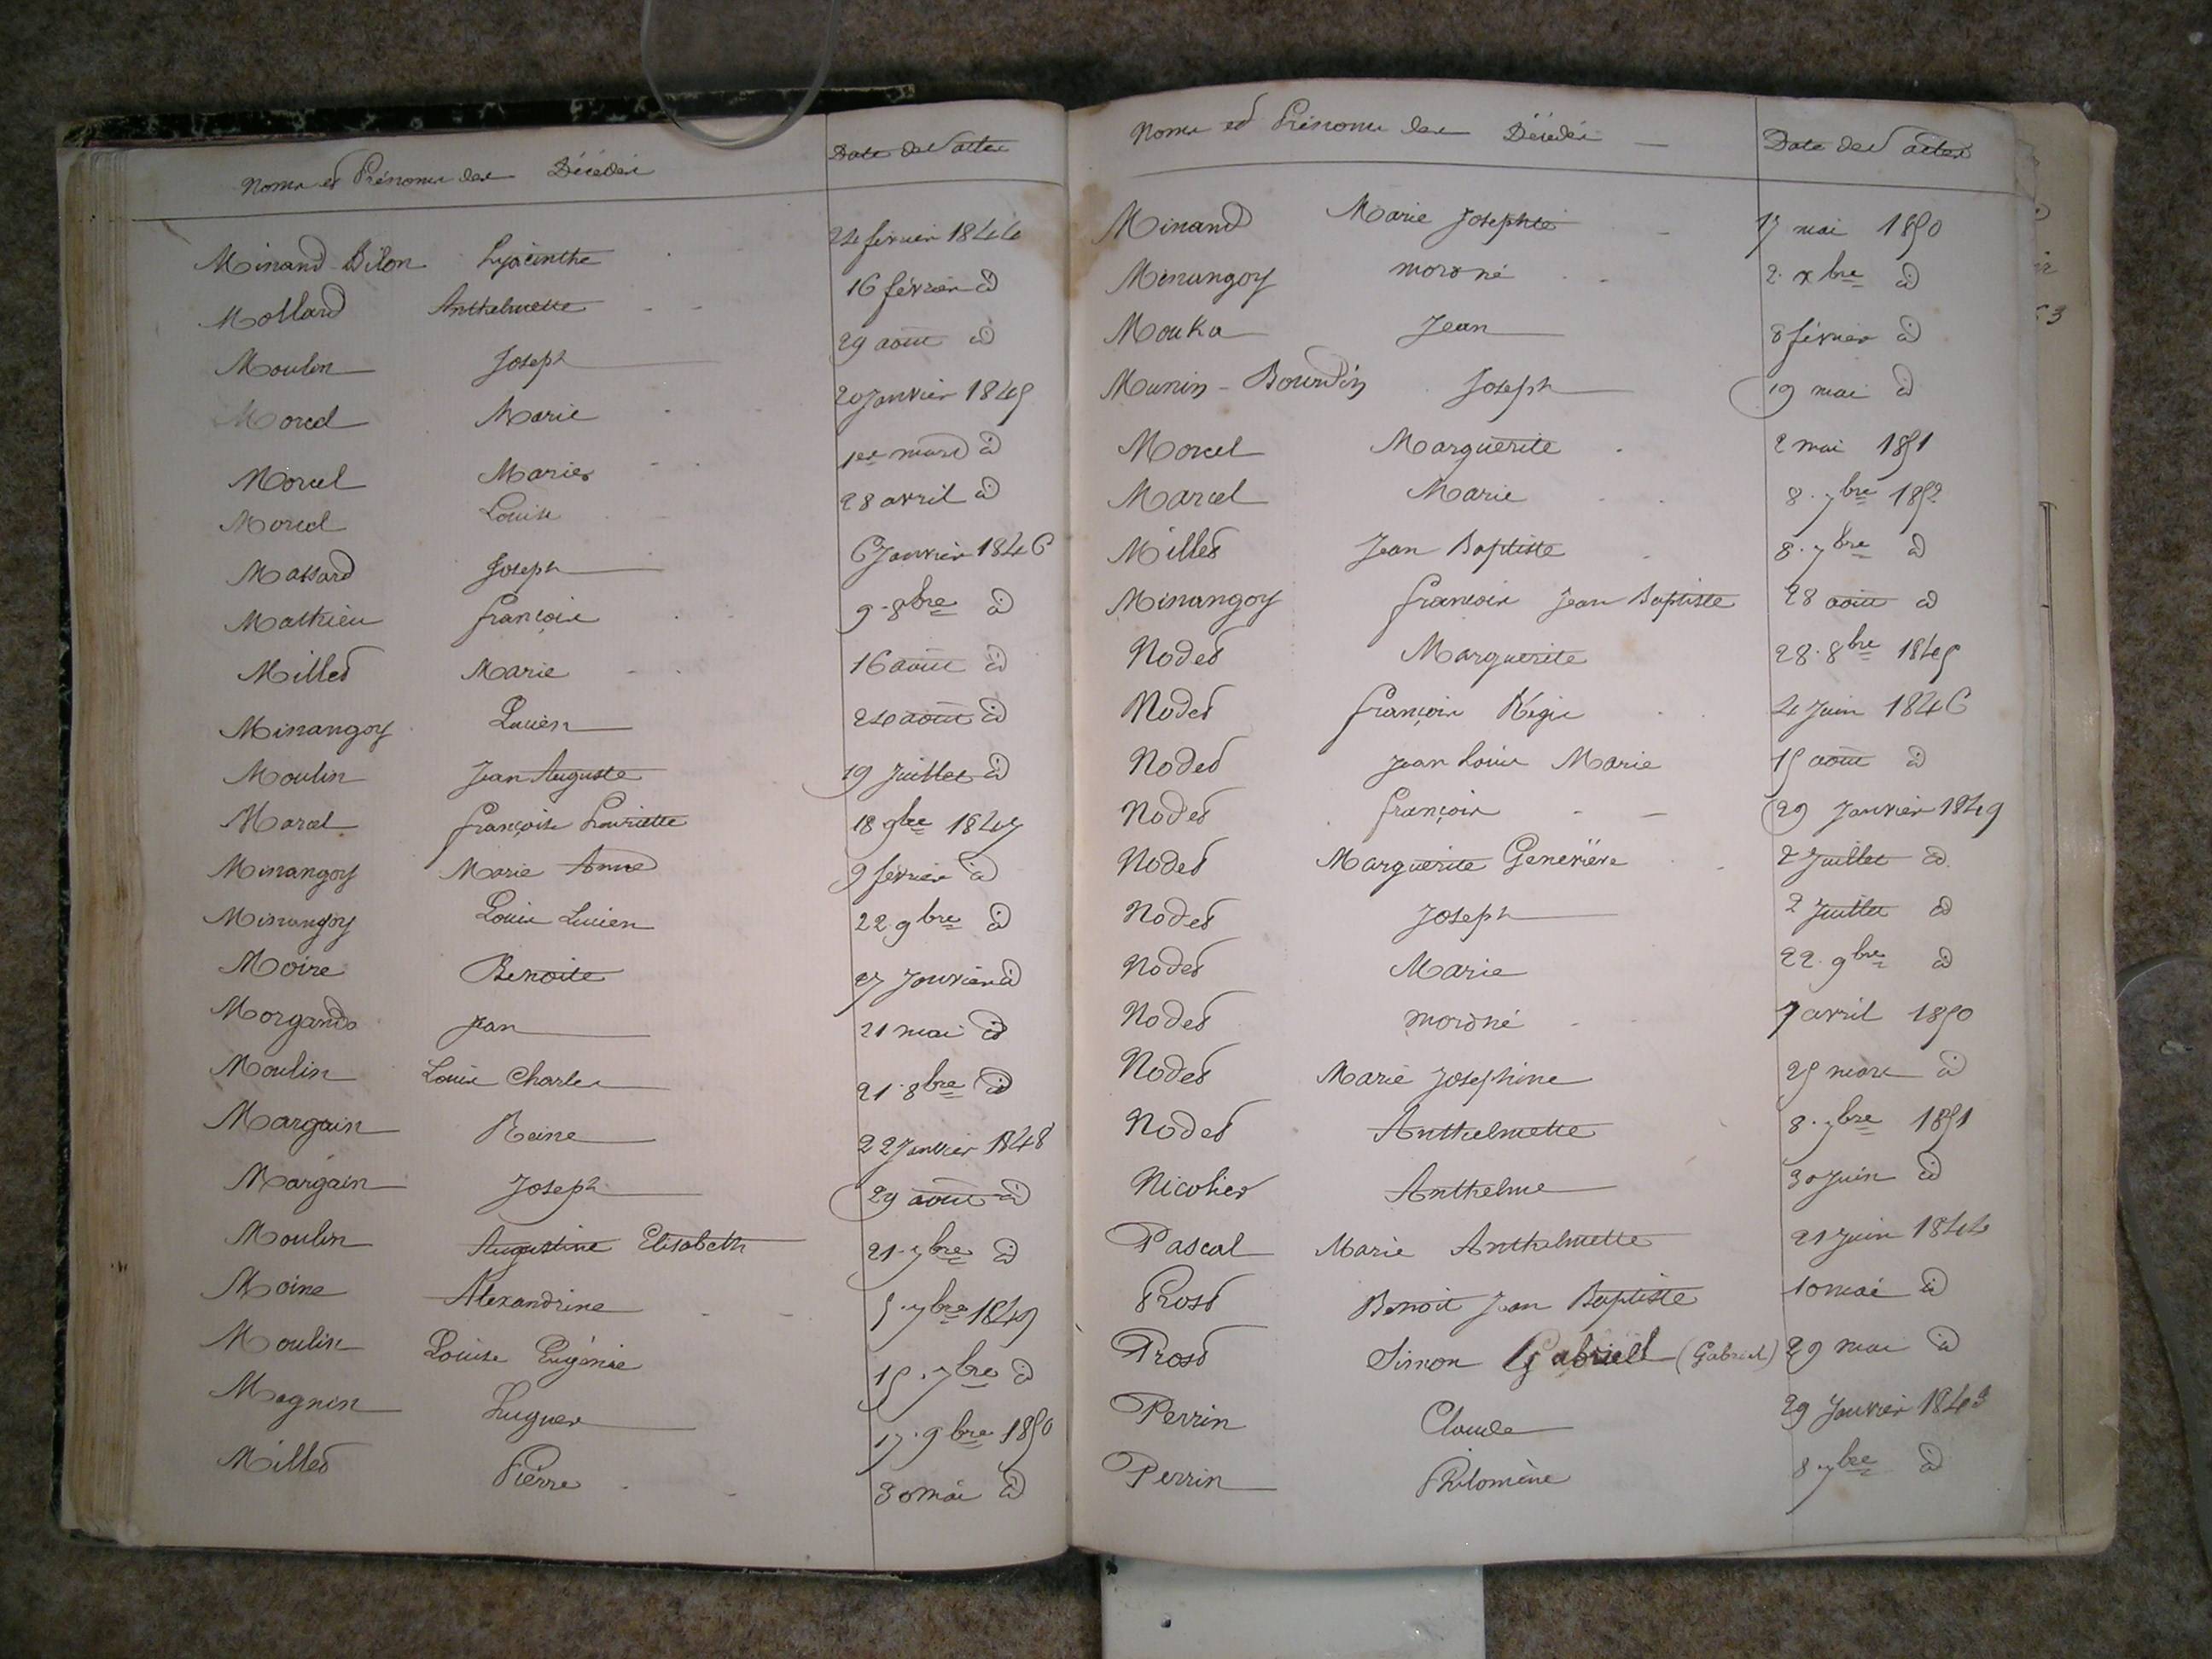 Noms et Prénoms des Décédés Date des actes
Minand-Bilon Hyacinthe 24 février 1844
Mollard Anthelmette 16 février id
Moulin Joseph 29 août id
Morel Marie 20 Janvier 1845
Morel Marie 1er mars id
Morel Louise 28 avril id
Massard Joseph 6 Janvier 1846
Mathieu François 9. 8bre id
Millet Marie 16 août id
Minangoy Lucien 24 août id
Moulin Jean Auguste 19 Juillet id
Marcel Françoise 18 9bre 1847
Minangoy Marie Anne 9 février id
Minangoy Louis Lucien 22. 9bre id
Moire Benoite 27 Janvier id
Morgando Jean 21 mai id
Moulin Louis Charles 21. 8bre id
Margain Reine 22 Janvier 1848
Margain Joseph 29 août id
Moulin Augustine Elisabeth 21. 7bre id
Moine Alexandrine 5. 7bre 1849
Moulin Louise Eugénie 15. 7bre id
Magnin Hugues 17. 9bre 1850
Millet Pierre 30 mai id
Noms et Prénoms des Décédés Date des actes
Minand Marie Josephte 17 mai 1850
Minangoy mort né 2. xbre id
Mouka Jean 8 février id
Munin-Bourdin Joseph 19 mai id
Morcel Marguerite 2 mai 1851
Marcel Marie 8. 7bre 1852
Millet Jean Baptiste 8. 7bre id
Minangoy François Jean Baptiste 28 août id
Nodet Marguerite 28. 8bre 1845
Nodet François Régis 4 Juin 1846
Nodet Jean Louis Marie 15 août id
Nodet François 29 Janvier 1849
Nodet Marguerite Geneviève 2 Juillet id
Nodet Joseph 2 Juillet id
Nodet Marie 22. 9bre id
Nodet mort né 7 avril 1850
Nodet Marie Joséphine 25 mars id
Nodet Anthelmette 8. 7bre 1851
Nicolier Anthelme 30 Juin id
Pascal Marie Anthelmette 21 Juin 1844
Prost Benoit Jean Baptiste 10 mai id
Prost Simon Gabriel (Gabriel) 29 mai id
Perrin Claude 29 Janvier
Perrin Philomène 8. 7bre id